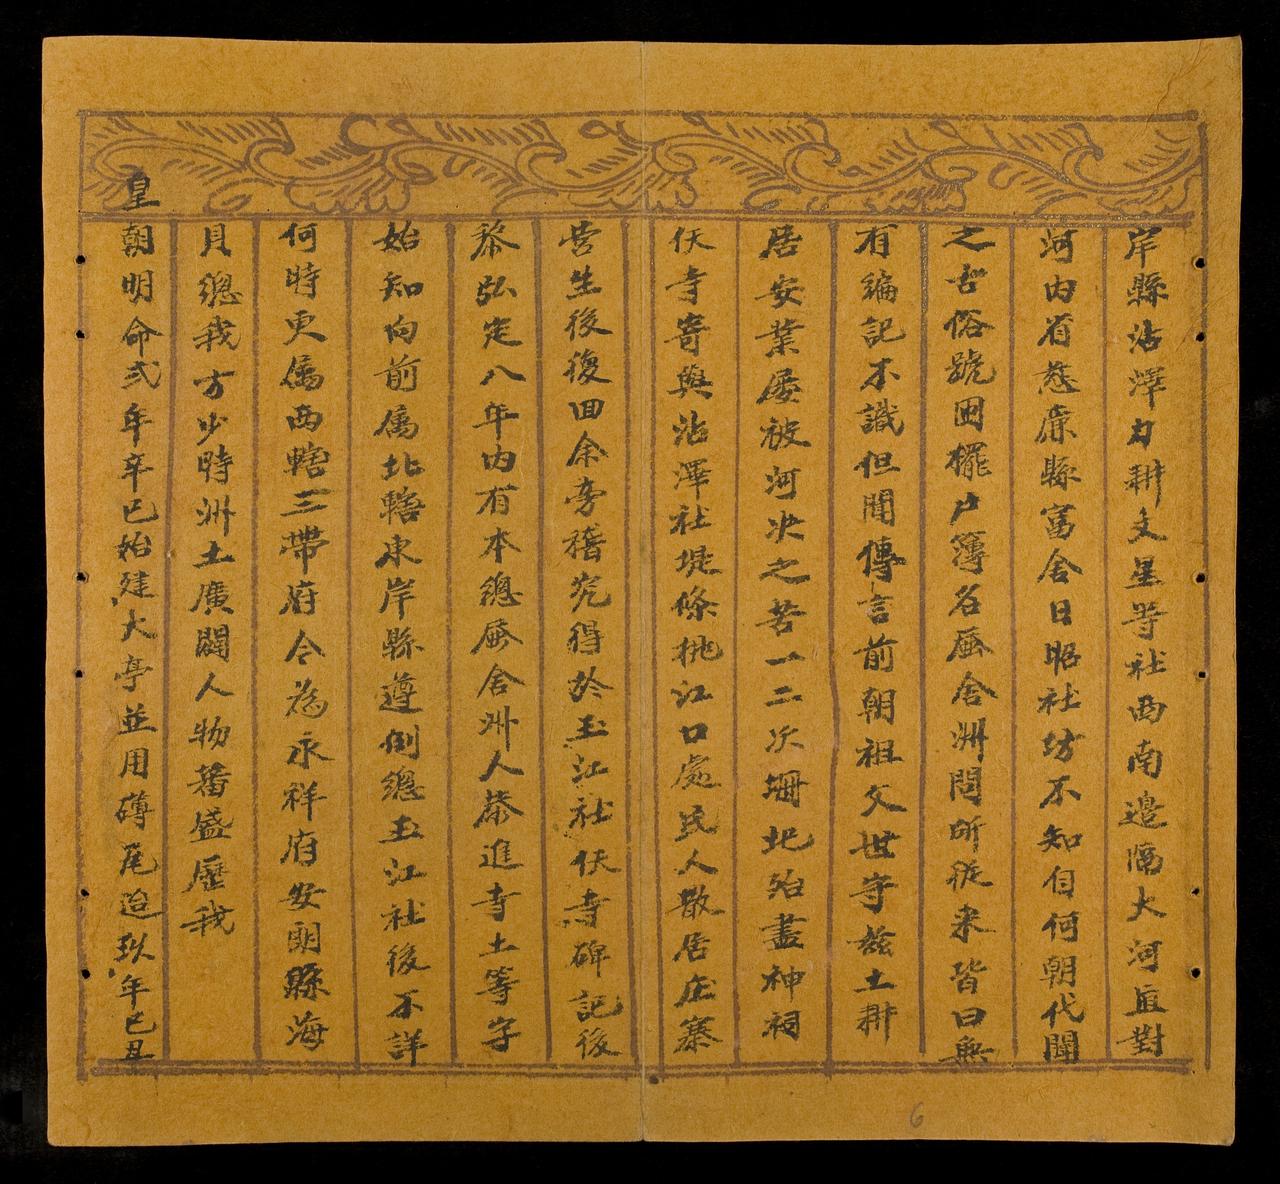 岸縣沾澤力耕文星等社西南邊隔大河直對
河内省慈廉縣富舍日昭社坊不知自何朝代開
之古俗號囲擺户簿名蜃舍洲問所從来皆曰無
有編記不識但聞傳言前朝祖父世守兹土耕
居安業屡被河决之苦一二次坍圯殆盡神祠
伕寺寄與沾澤社堤條桃江口處民人散居庄寨
营生後復回余旁稽究得於玉江社伕寺碑記後
黎弘定八年内有本總蜃舍洲人恭進寺土等字
始知向前属北轄東岸縣遵例總玉江社後不詳
何時更属西轄三帶府今為永祥府安朗縣海
貝總我方少時洲土廣闊人物蕃盛歷我
皇朝明命弍年辛巳始建大亭並用磚尾迨玖年己丑
6